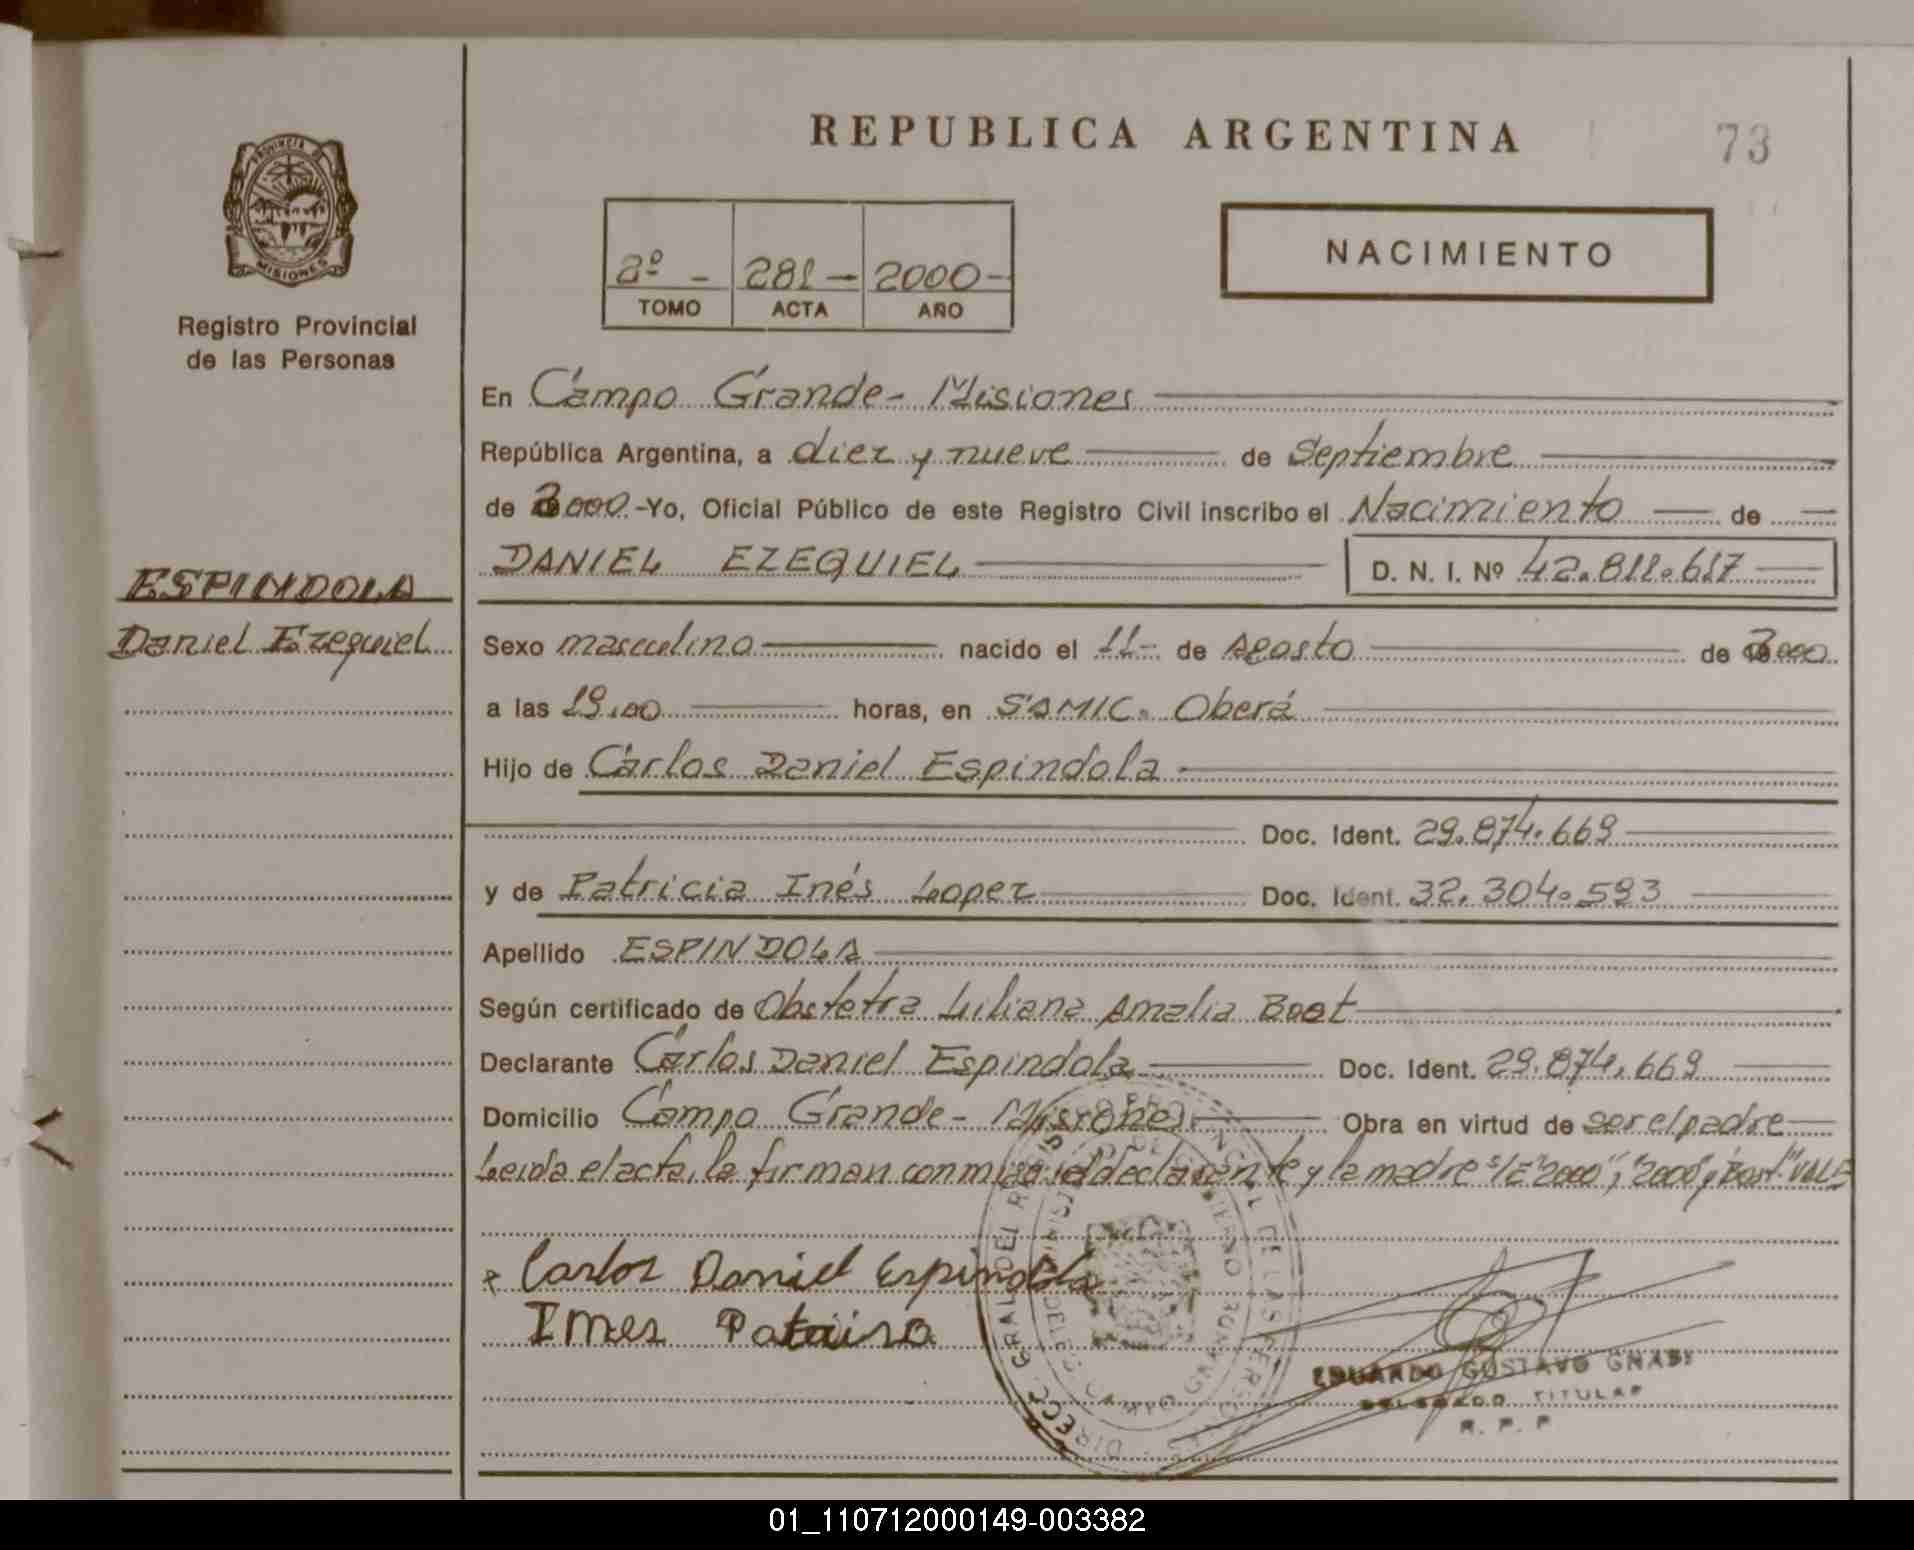 REPUBLICA ARGENTINA
73
PROVINCIA DE
MISIONES
Registro Provincial
de las Personas
2º - 281 - 2000 -
TOMO ACTA AÑO
NACIMIENTO
En Campo Grande - Misiones
República Argentina, a diez y nueve de Septiembre
de 2000 - Yo, Oficial Público de este Registro Civil inscribo el Nacimiento de
DANIEL EZEQUIEL D. N. I. Nº 42.811.617
ESPINDOLA
Daniel Ezequiel
Sexo masculino nacido el 11- de Agosto de 2000
a las 19.00 horas, en SAMIC. Oberá
Hijo de Carlos Daniel Espindola
Doc. Ident. 29.874.669
y de Patricia Inés Lopez Doc. Ident. 32.304.593
Apellido ESPINDOLA
Según certificado de Obstetra Liliana Amalia Boat
Declarante Carlos Daniel Espindola Doc. Ident. 29.874.669
Domicilio Campo Grande - Misiones Obra en virtud de ser el padre
Leida el acta, la firman conmigo el declarante y la madre s/r "2000", "2000" y "Boat" VALE
Carlos Daniel Espindola
Ines Patrisa
EDUARDO GUSTAVO GNASS
DELEGADO TITULAR
R. P. P
01_110712000149-003382